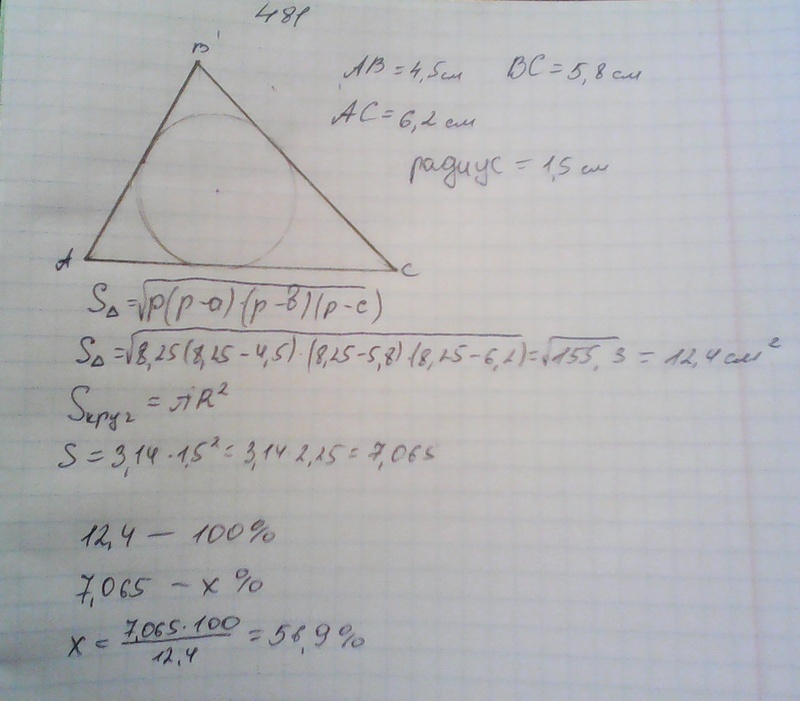 481
B
AB = 4,5 см BC = 5,8 см
AC = 6,2 см
радиус = 1,5 см
A C
S△ = √p(p-a)·(p-в)(p-c)
S△ = √8,25(8,25-4,5)·(8,25-5,8)(8,25-6,2) = √155,3 = 12,4 см²
Sкруг = πR²
S = 3,14·1,5² = 3,14·2,25 = 7,065
12,4 — 100%
7,065 — x%
x = 7,065·100/12,4 = 56,9%